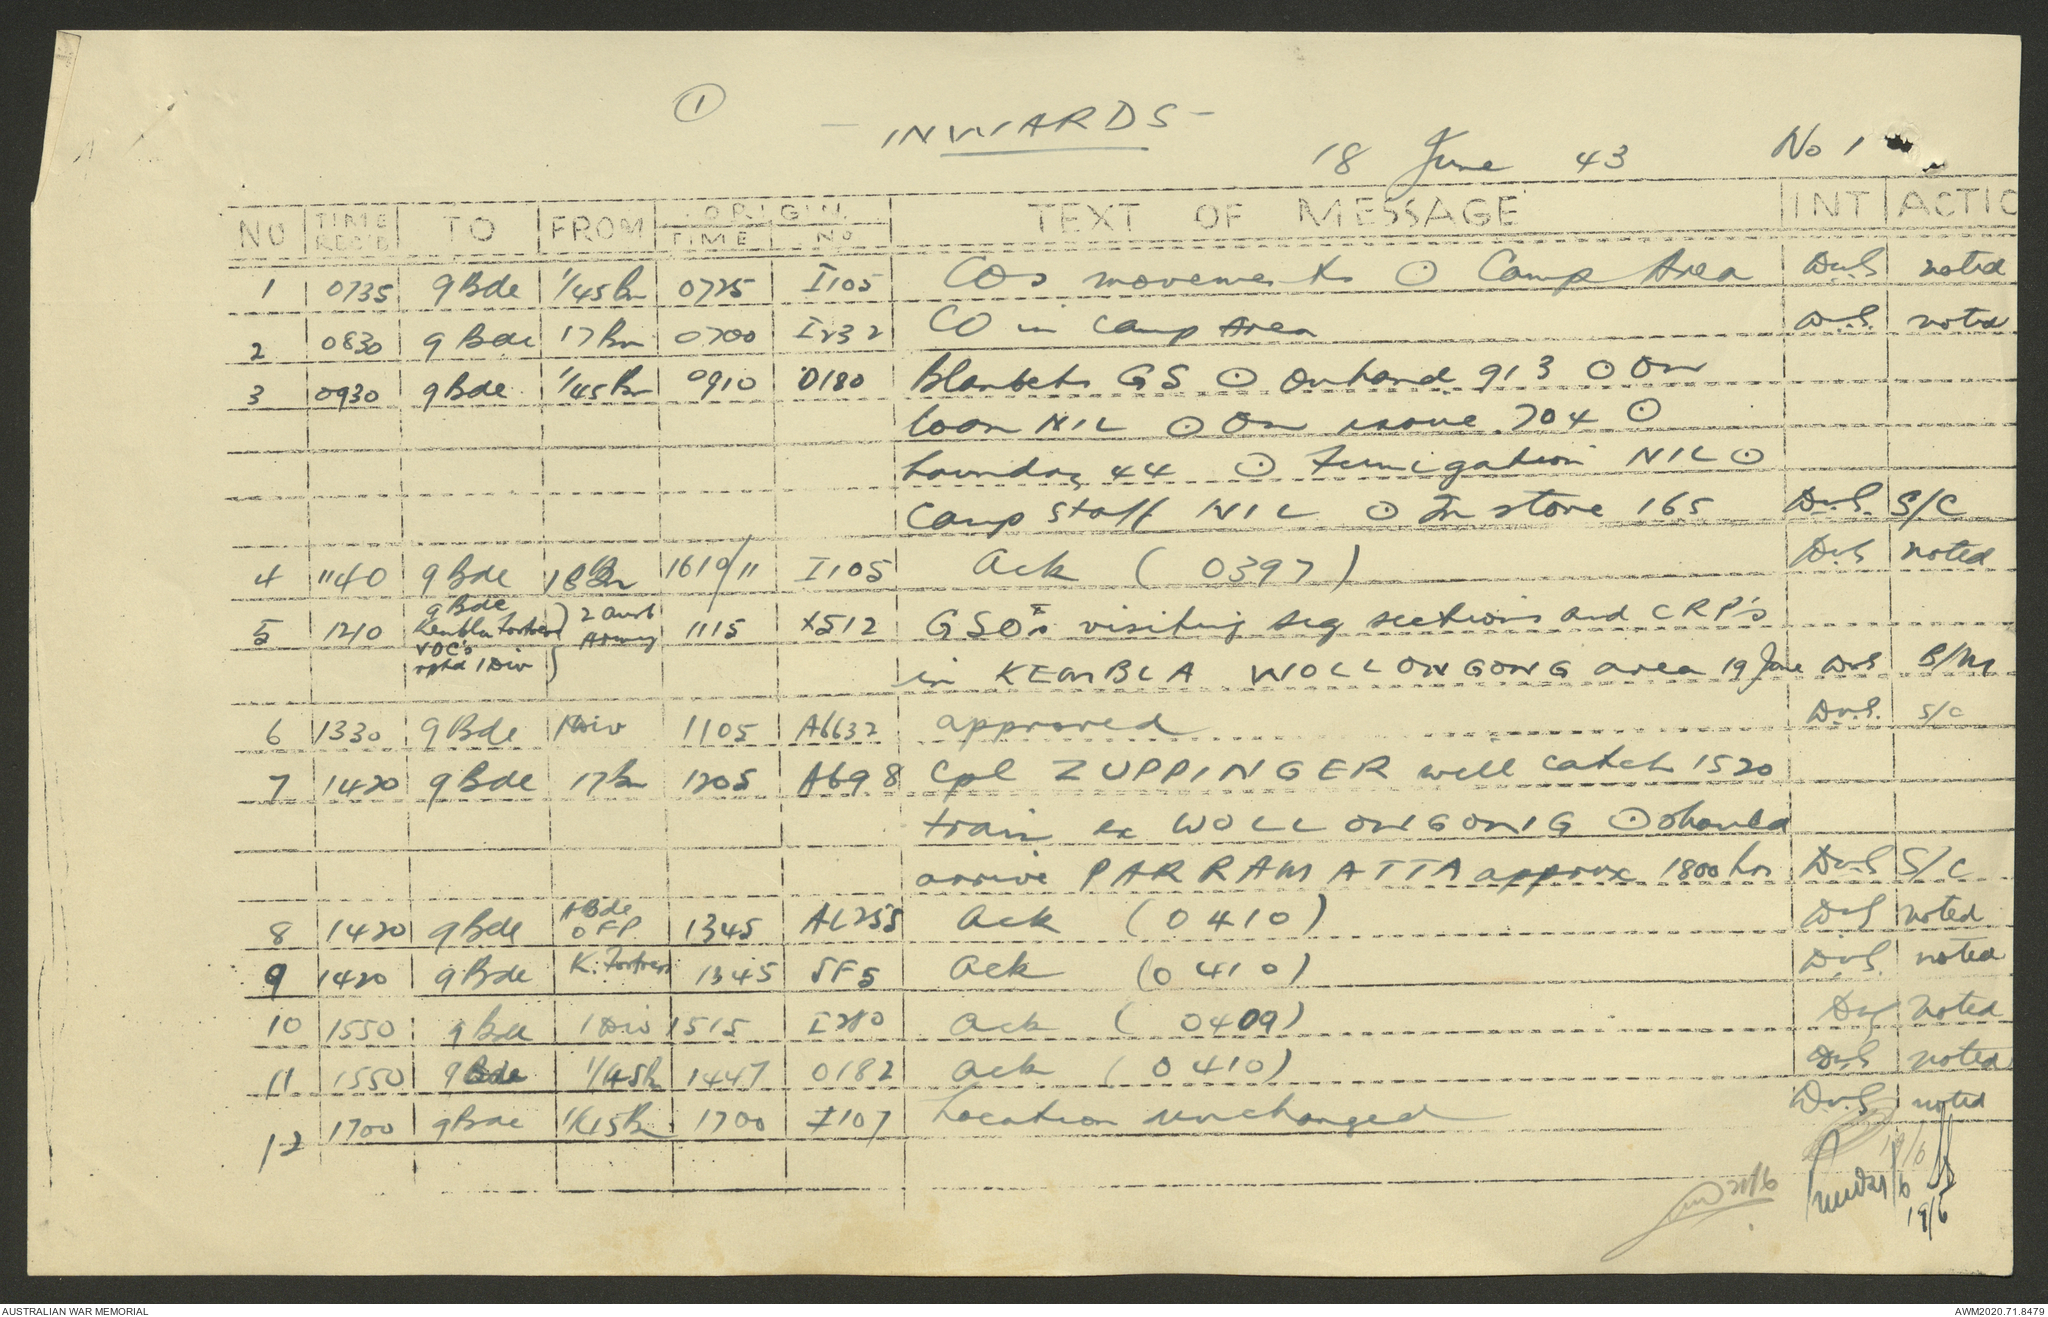 1
- INWARDS -
18 June 43 No 1
NO TIME REC'D TO FROM ORIGIN TIME NO TEXT OF MESSAGE INT ACTIO
1 0735 9 Bde 1/45 Bn 0725 I105 COs movements ⊙ Camp Area DvS noted
2 0830 9 Bde 17 Bn 0700 I232 CO in Camp Area DvS. noted
3 0930 9 Bde 1/45 Bn 0910 O180 Blankets GS ⊙ On hand 913 ⊙ On
loan NIL ⊙ On issue 704 ⊙
Laundry 44 ⊙ Fumigation NIL ⊙
Camp Staff NIL ⊙ In store 165 DvS. S/C
4 1140 9 Bde 18 Bn 1610/11 I105 Ack (0397) DvS noted
5 1210 9 Bde Kembla Fortress VDC's rptd 1 Div 2 Aust Army 1115 X512 GSO I visiting sig sections and CRP's
in KEMBLA WOLLONGONG area 19 June DvS B/M
6 1330 9 Bde 1 Div 1105 A6632 approved DvS. S/C
7 1420 9 Bde 17 Bn 1205 A698 Cpl ZUPPINGER will catch 1520
train ex WOLLONGONG ⊙ should
arrive PARRAMATTA approx 1800 hrs DvS S/C
8 1420 9 Bde A Bde OFP 1345 AL255 Ack (0410) DvS noted
9 1420 9 Bde K. Fortress 1345 SF5 Ack (0410) DvS. noted
10 1550 9 Bde 1 Div 1515 I280 Ack (0409) DvS noted
11 1550 9 Bde 1/45 Bn 1447 O182 Ack (0410) DvS noted
12 1700 9 Bde 1/45 Bn 1700 I107 Location unchanged DvS noted
19/6
21/6 21/6
19/6
AUSTRALIAN WAR MEMORIAL AWM2020.71.8479